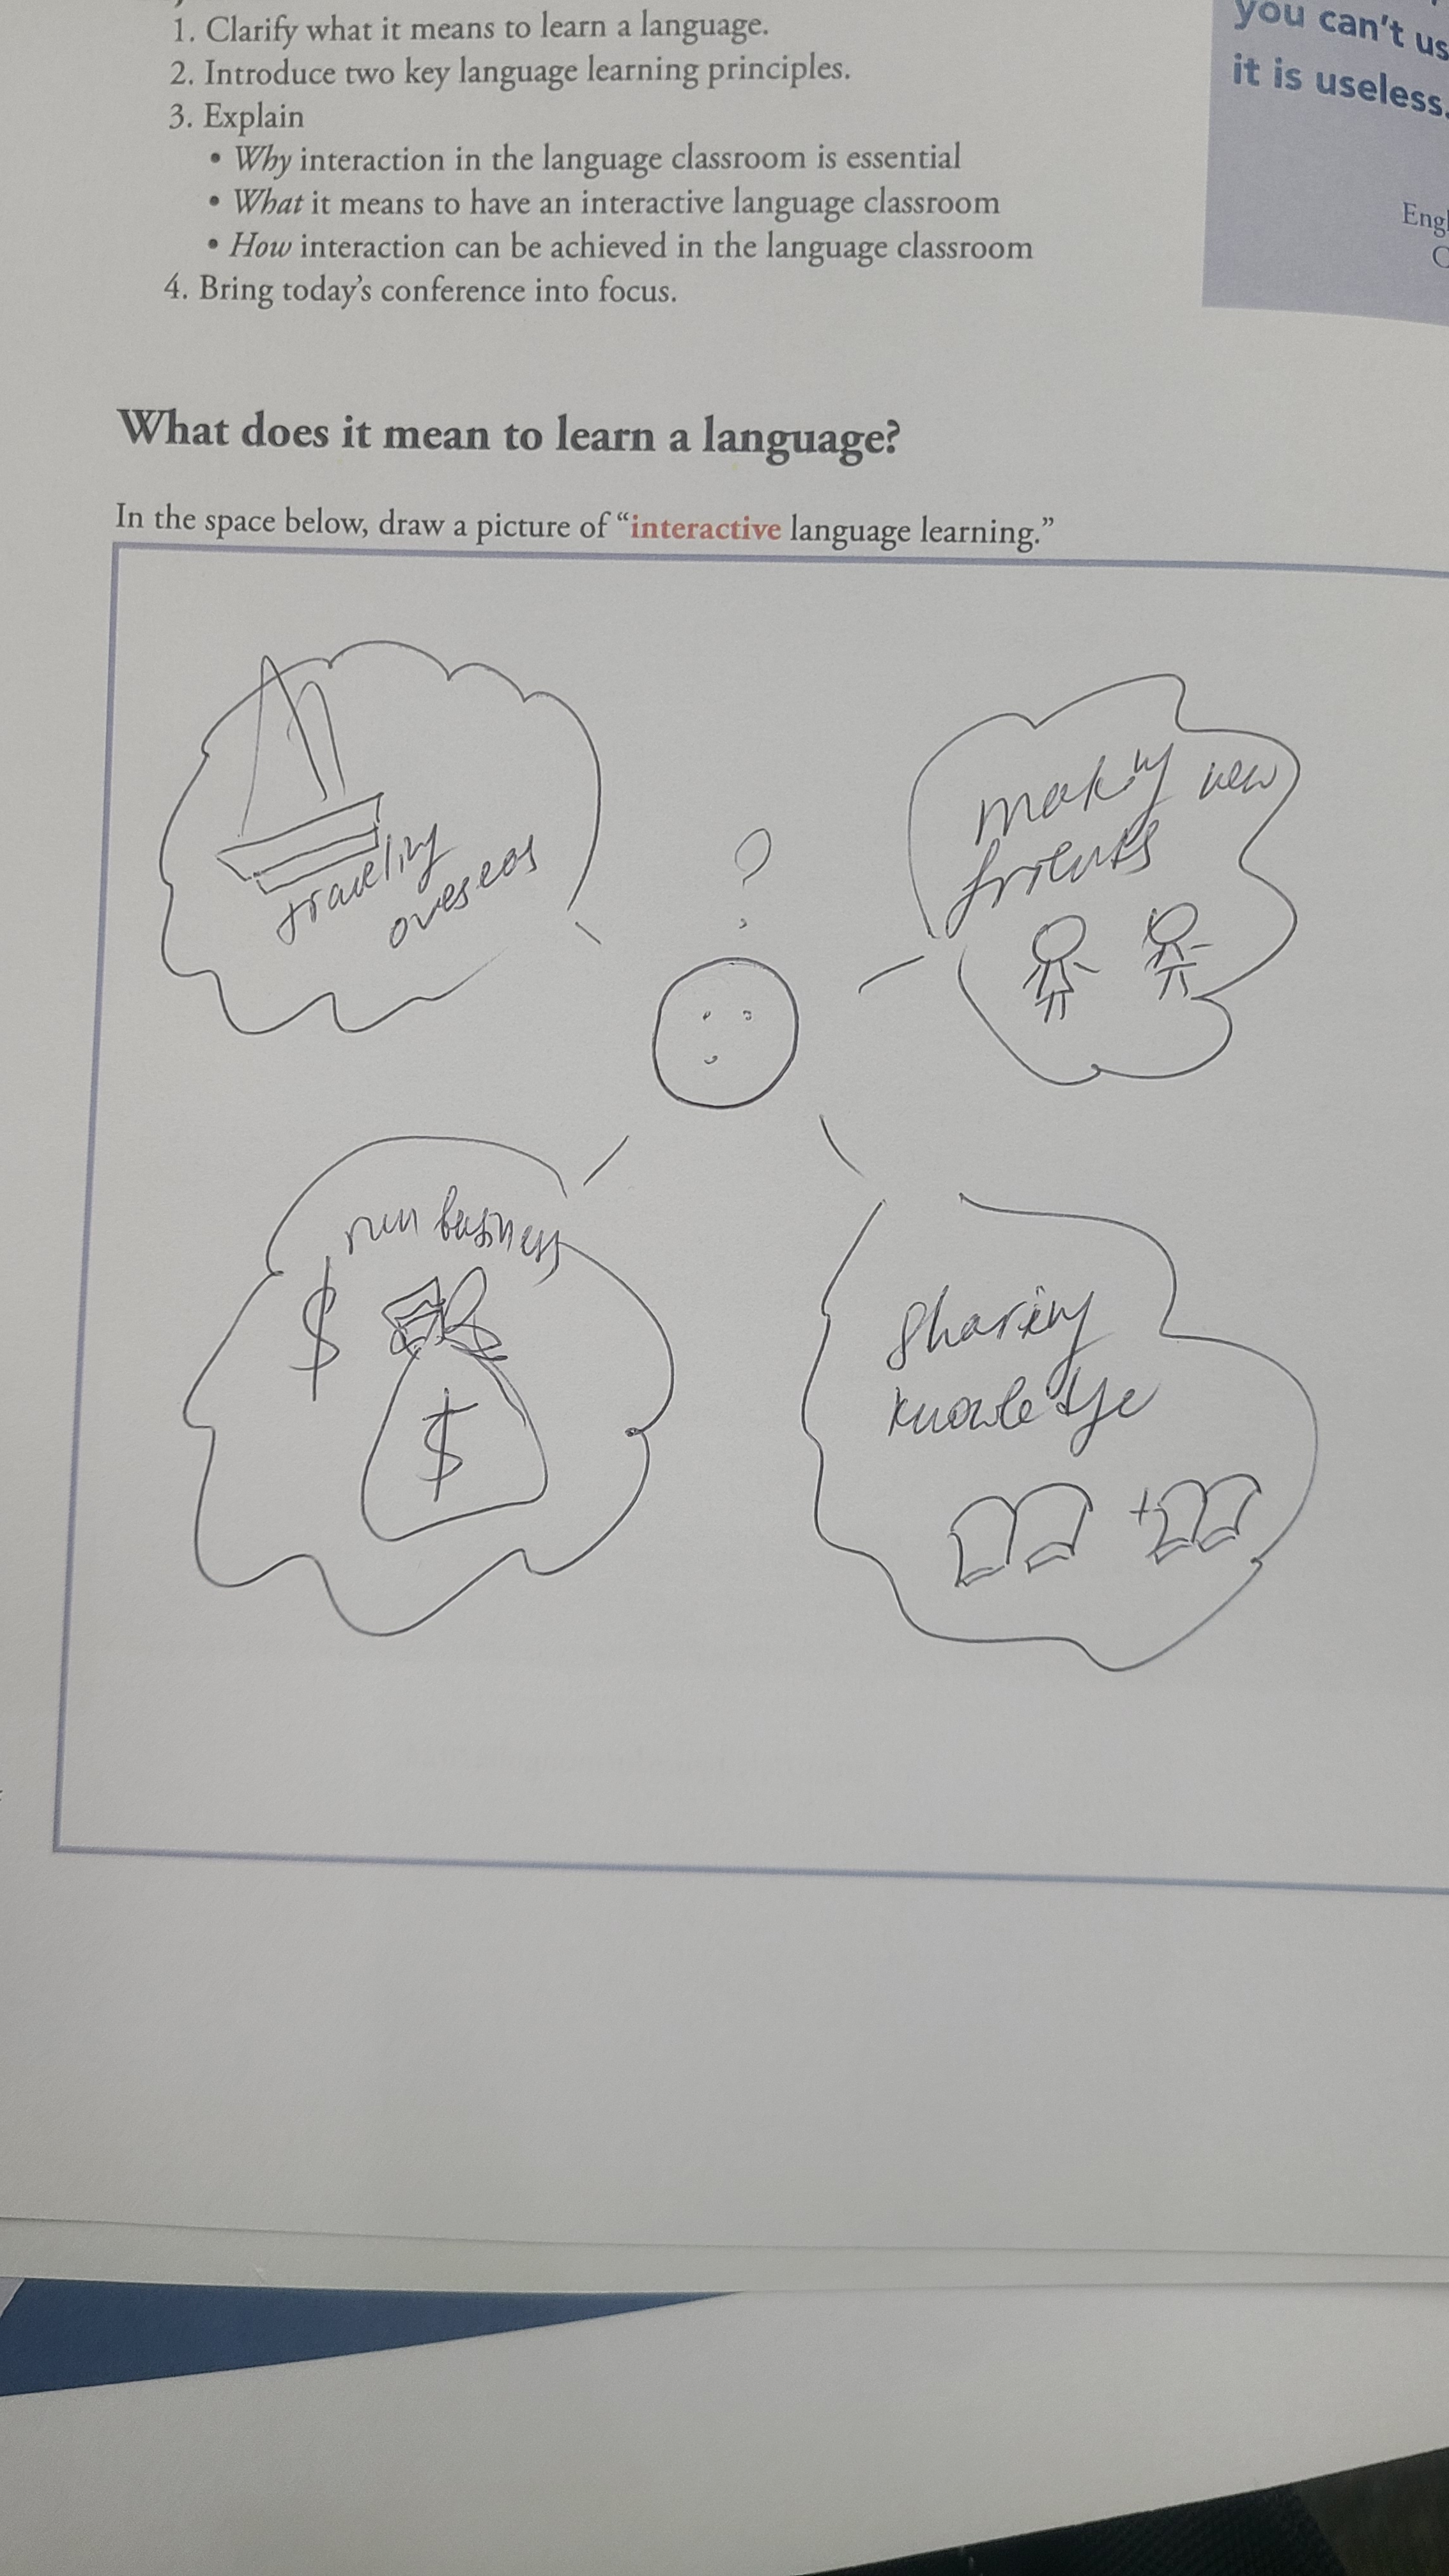 1. Clarify what it means to learn a language.
2. Introduce two key language learning principles.
3. Explain
• Why interaction in the language classroom is essential
• What it means to have an interactive language classroom
• How interaction can be achieved in the language classroom
4. Bring today's conference into focus.
you can't us
it is useless.
Engl
C
What does it mean to learn a language?
In the space below, draw a picture of “interactive language learning.”
traveling
overseas
?
making new
friends
run business
$
$
Sharing
knowledge
+